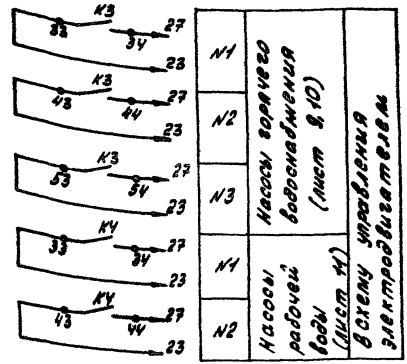 К3
33
34
27
23
К3
43
44
27
23
К3
53
54
27
23
К4
33
34
27
23
К4
43
44
27
23
N1
N2
N3
N1
N2
Насосы горячего
водоснабжения
(лист 9,10)
Насосы
рабочей
воды
(лист 11)
В схему управления
электродвигателем